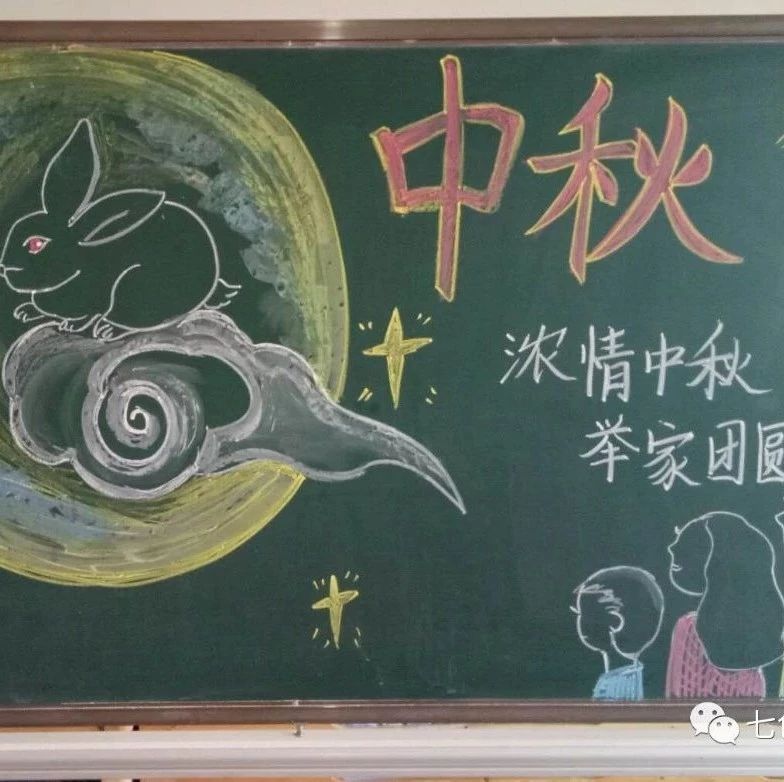 中秋
浓情中秋
举家团圆
七